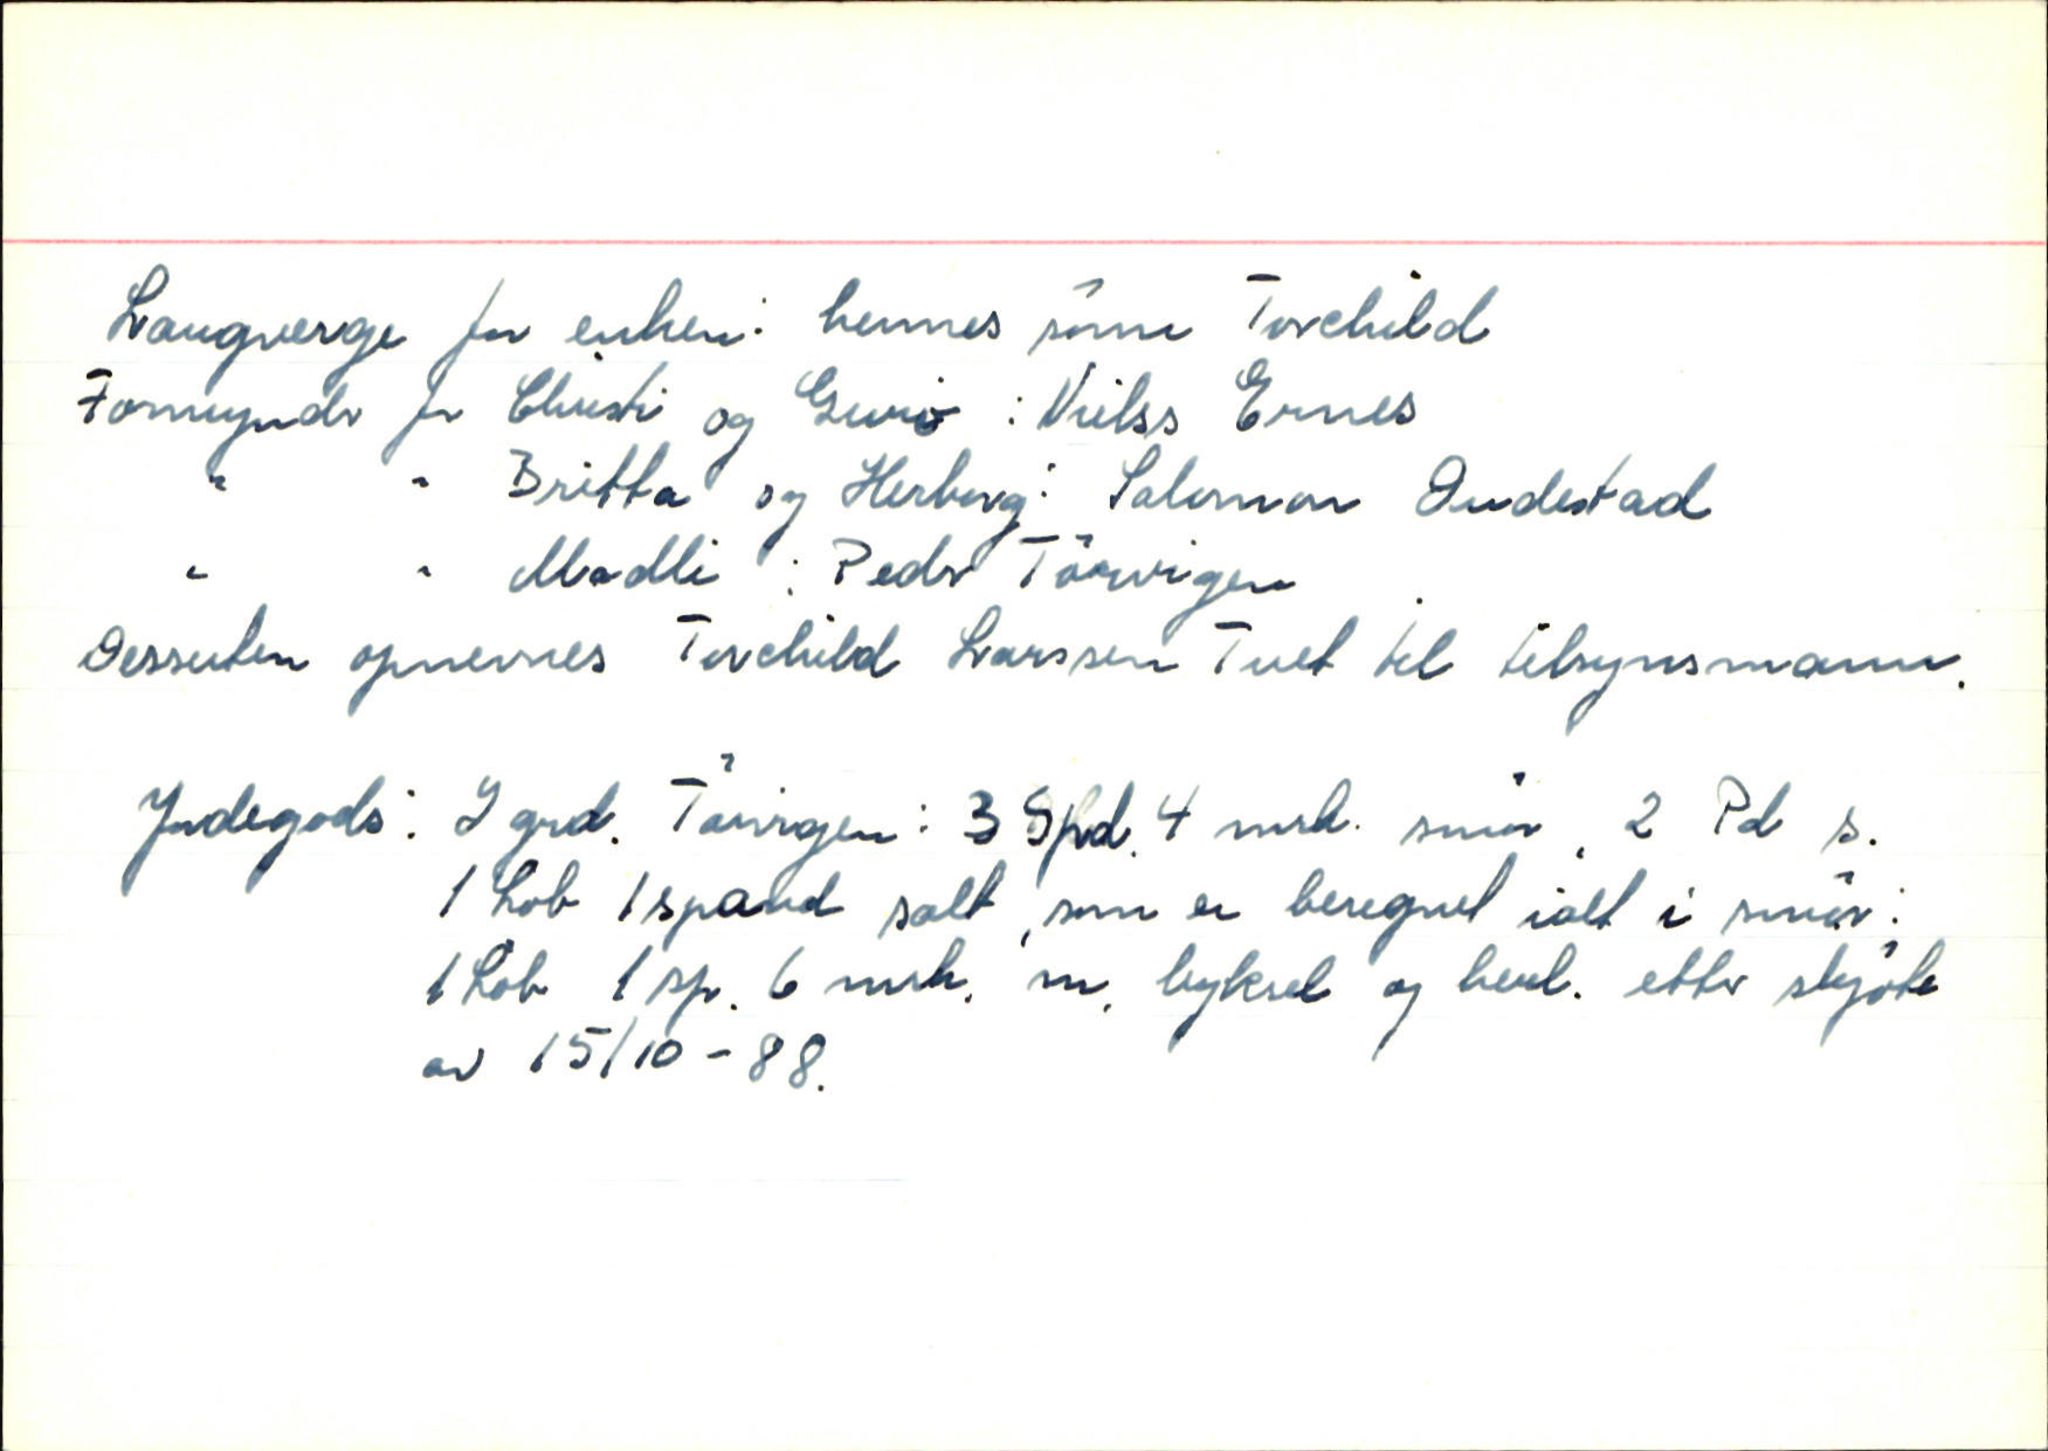 Laugverge for enken: hennes sönn Torchild
Formynder for Christi og Guro : Nielss Ernes
" " Britta og Herborg: Salomon Dudestad
" " Madli : Peder Törvigen
Dessuten opnevnes Torchild Larssen Tvet til tilsynsmann.
Jordegods: I grd. Törvigen: 3 Spd. 4 mrk. smör, 2 Pd s.
1 Löb 1 spand salt, som er beregnet ialt i smör:
1 Löb 1 sp. 6 mrk. m. byksel og herl. etter skjöte
av 15/10-88.